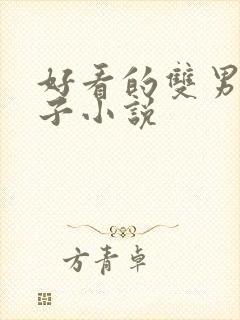 好看的雙男
子小說
方青卓